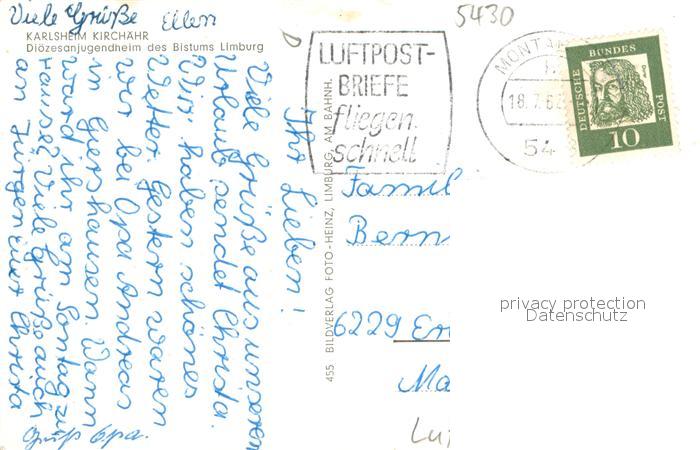 Viele Grüße Ellen
KARLSHEIM KIRCHÄHR
Diözesanjugendheim des Bistums Limburg
Ihr Lieben!
Viele Grüße aus unserem
Urlaub sendet Christa.
Wir haben schönes
Wetter. Gestern waren
wir bei Opa Andreas
in Gershausen. Wann
ward ihr am Sonntag zu
Hause? Viele Grüße auch
an Jürgen eure Christa
Gruß Opa.
455 BILDVERLAG FOTO-HEINZ, LIMBURG, AM BAHNH.
5430
LUFTPOST-
BRIEFE
fliegen
schnell
MONTA
18.7.6
54
DEUTSCHE BUNDES POST
10
Famil
Bern
6229 Er
Ma
privacy protection
Datenschutz